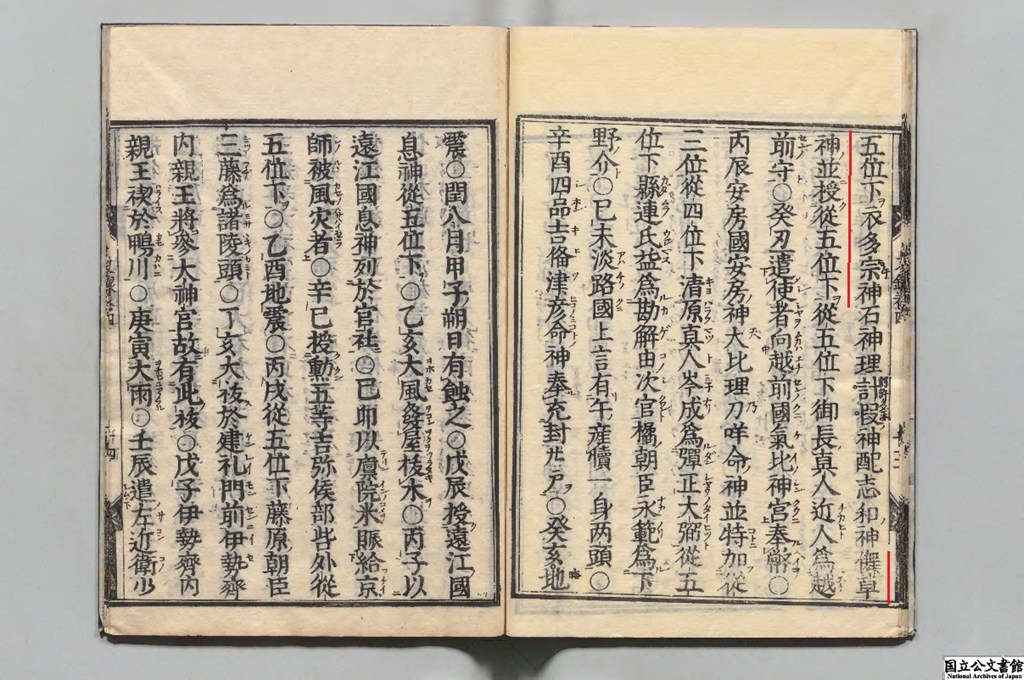 五位下衣多宗神石神理計假神配志和神儛草
神並授從五位下從五位下御長真人近人為越
前守○癸丑遣使者向越前國氣比神宮奉幣○
丙辰安房國安房神大比理刀咩命神並特加從
三位從四位下清原真人岑成為彈正大弼從五
位下縣連氏益為勘解由次官橘朝臣永範為下
野介○巳未淡路國上言有牛産犢一身两頭○
辛酉四品吉俻津彦命神奉充封廿戸○癸亥地
震○閏八月甲子朔日有蝕之○戊辰授遠江國
息神從五位下○乙亥大風發屋枝木○丙子以
遠江國息神列於官社○巳卯以廪院米賑給京
師被風灾者○辛巳授勳五等吉弥侯部呰外從
五位下○乙酉地震○丙戌從五位下藤原朝臣
三藤為諸陵頭○丁亥大祓於建礼門前伊勢齊
内親王將參大神宮故有此祓○戊子伊勢齊内
親王禊於鴨川○庚寅大雨○壬辰遣左近衛少
国立公文書館
National Archives of Japan